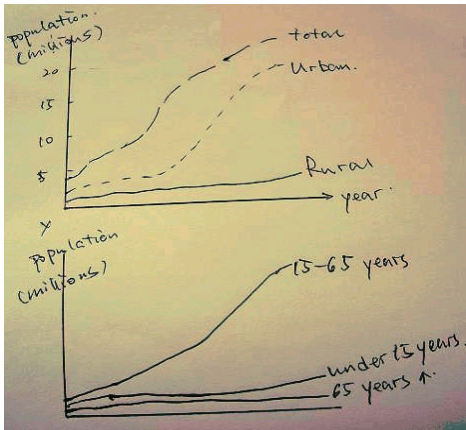 population.
(millions)
20
15
10
5
total
Urban.
Rural
year.
Y
population
(millions)
15-65 years
under 15 years.
65 years ↑.